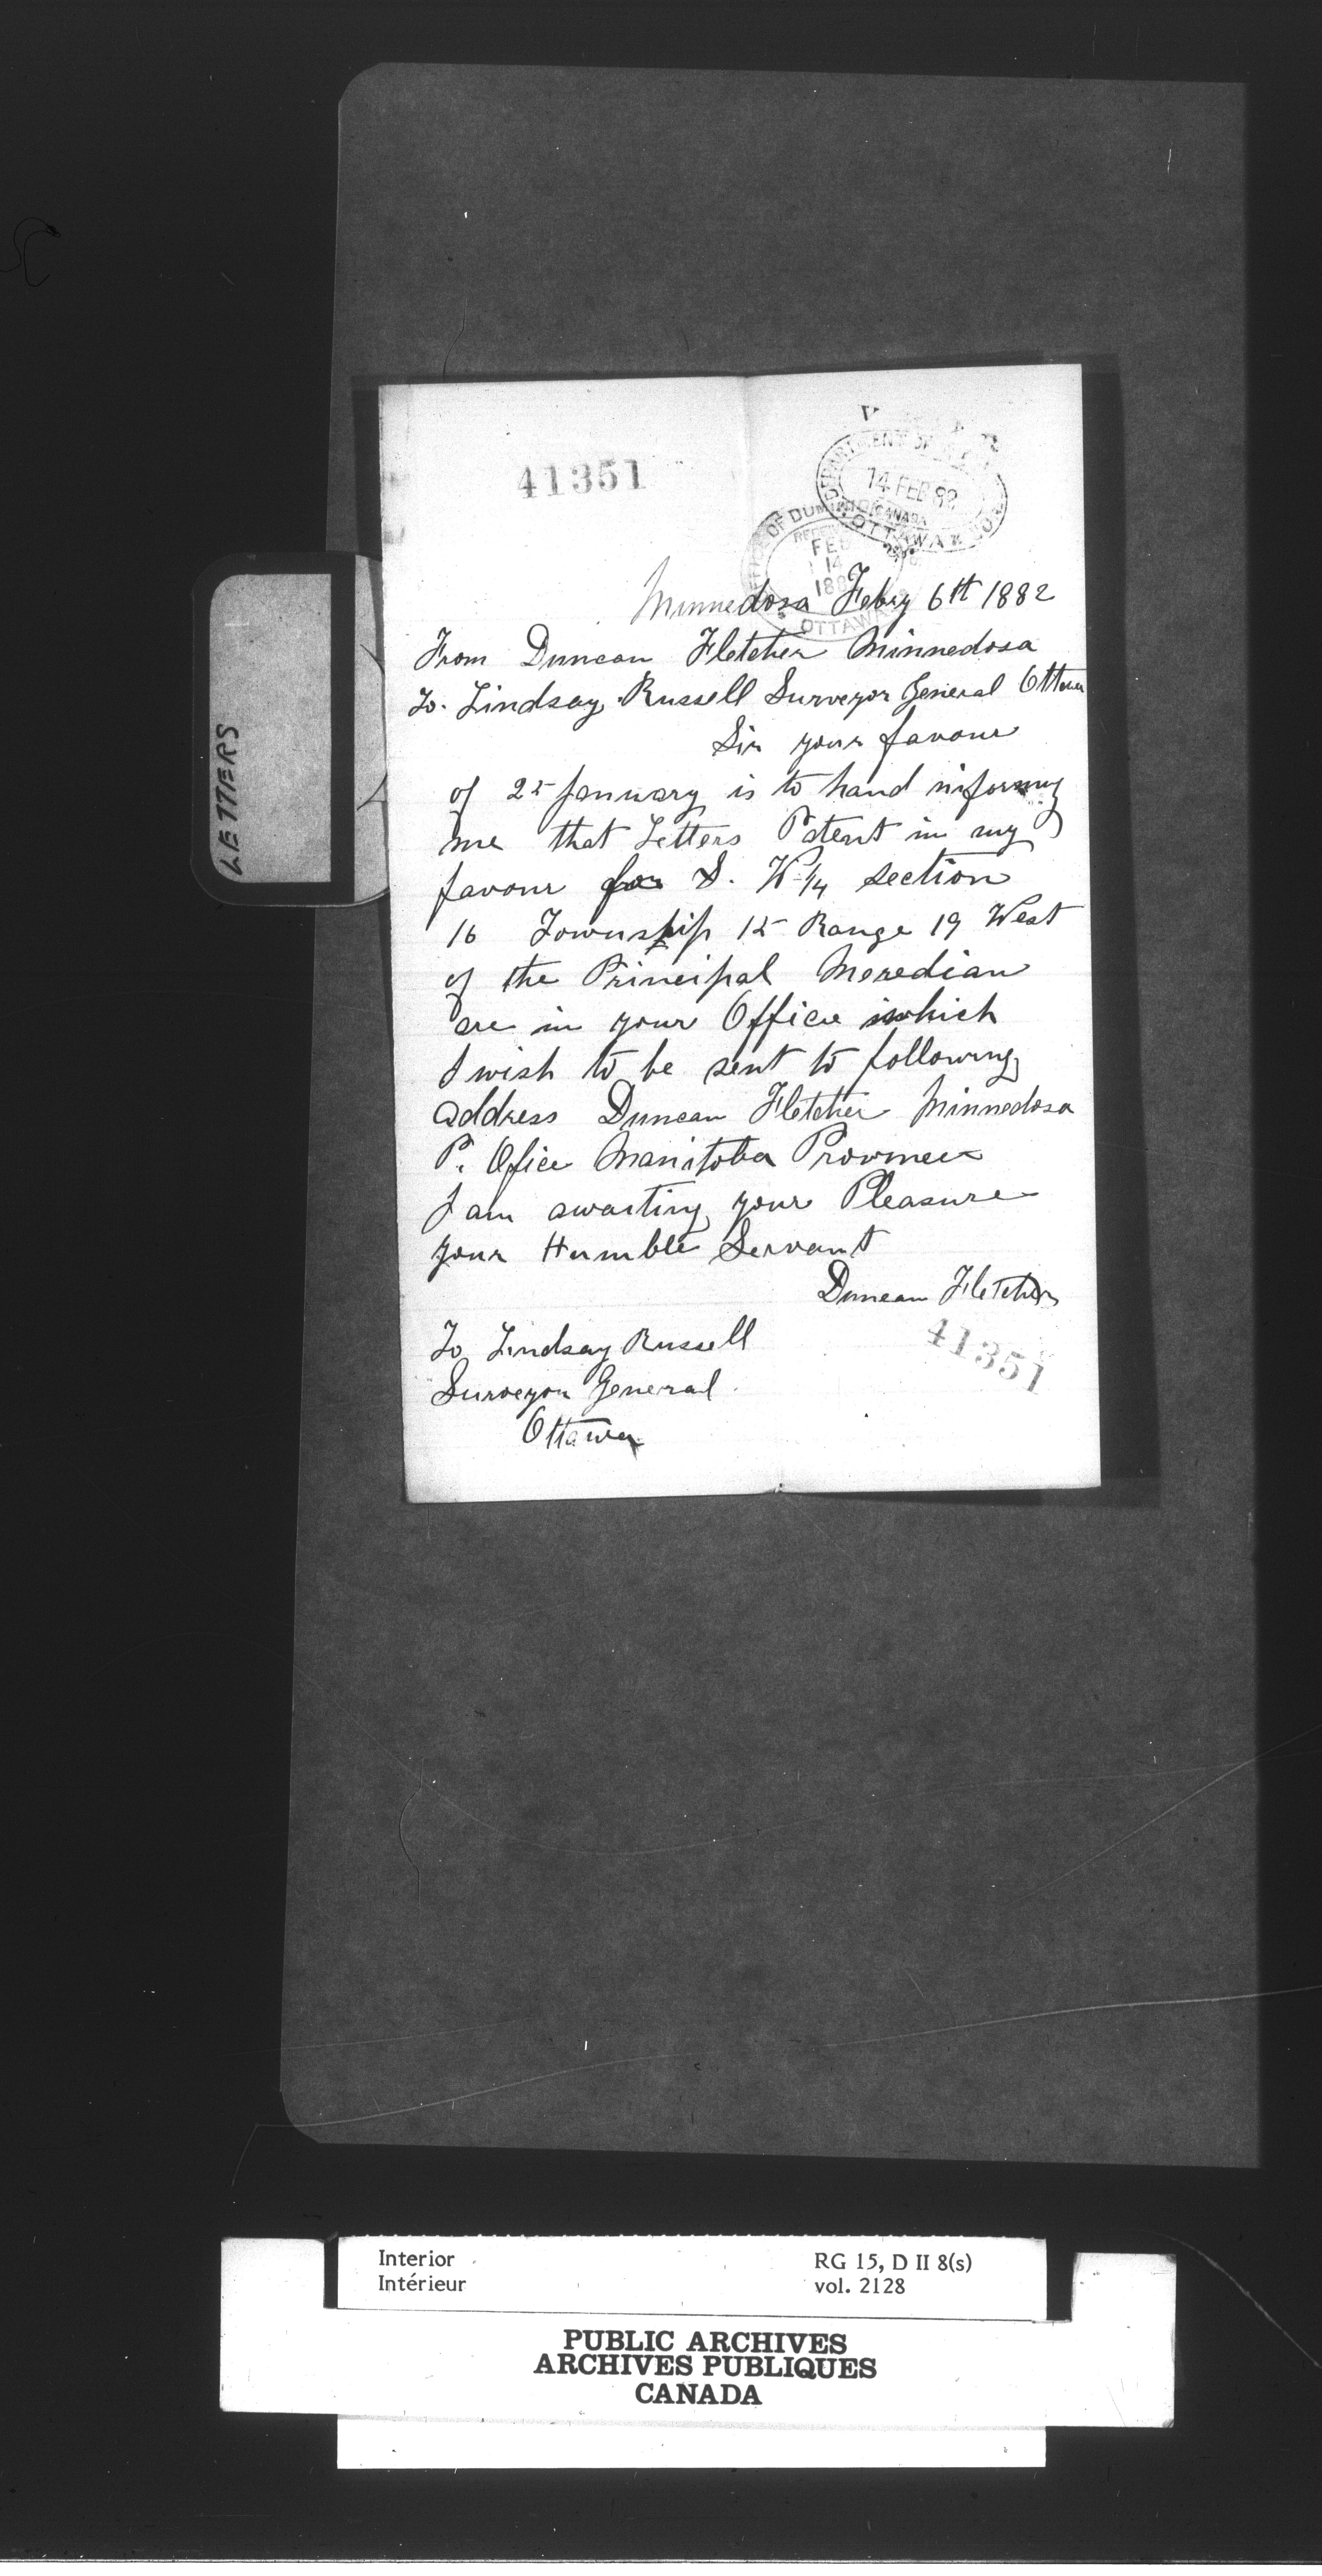 41351
DEPARTMENT OF
14 FEB 82
CANADA
OTTAWA
OFFICE OF DOMINION
FEB
14
188
OTTAWA
Minnedosa Feby 6th 1882
From Duncan Fletcher Minnedosa
To. Lindsay Russell Surveyor General Ottawa
Sir your favour
of 25 January is to hand informing
me that Letters Patent in my
favour for S. W 1/4 section
16 Township 15 Range 19 West
of the Principal Meredian
are in your Office which
I wish to be sent to following
address Duncan Fletcher Minnedosa
P. Ofice Manitoba Province
I am awaiting your Pleasure
your Humble Servant
Duncan Fletcher
41351
To Lindsay Russell
Surveyor General
Ottawa
LETTERS
Interior RG 15, D II 8(s)
Intérieur vol. 2128
PUBLIC ARCHIVES
ARCHIVES PUBLIQUES
CANADA